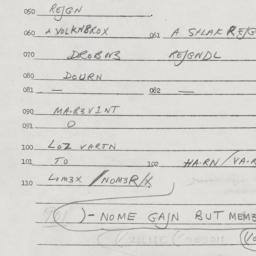 050 REIGN
060 A VOLKNBROX 061 A SPLAK REIG
070 DROBN3 REIGNDL
080 DOURN
081 — 082 —
090 MAR3VINT
091 O
100 LOZ VARTN
101 TO 100 HARN / VAR
110 LOM3X / NOM3R/X
) - NOME GAIN BUT MEMB